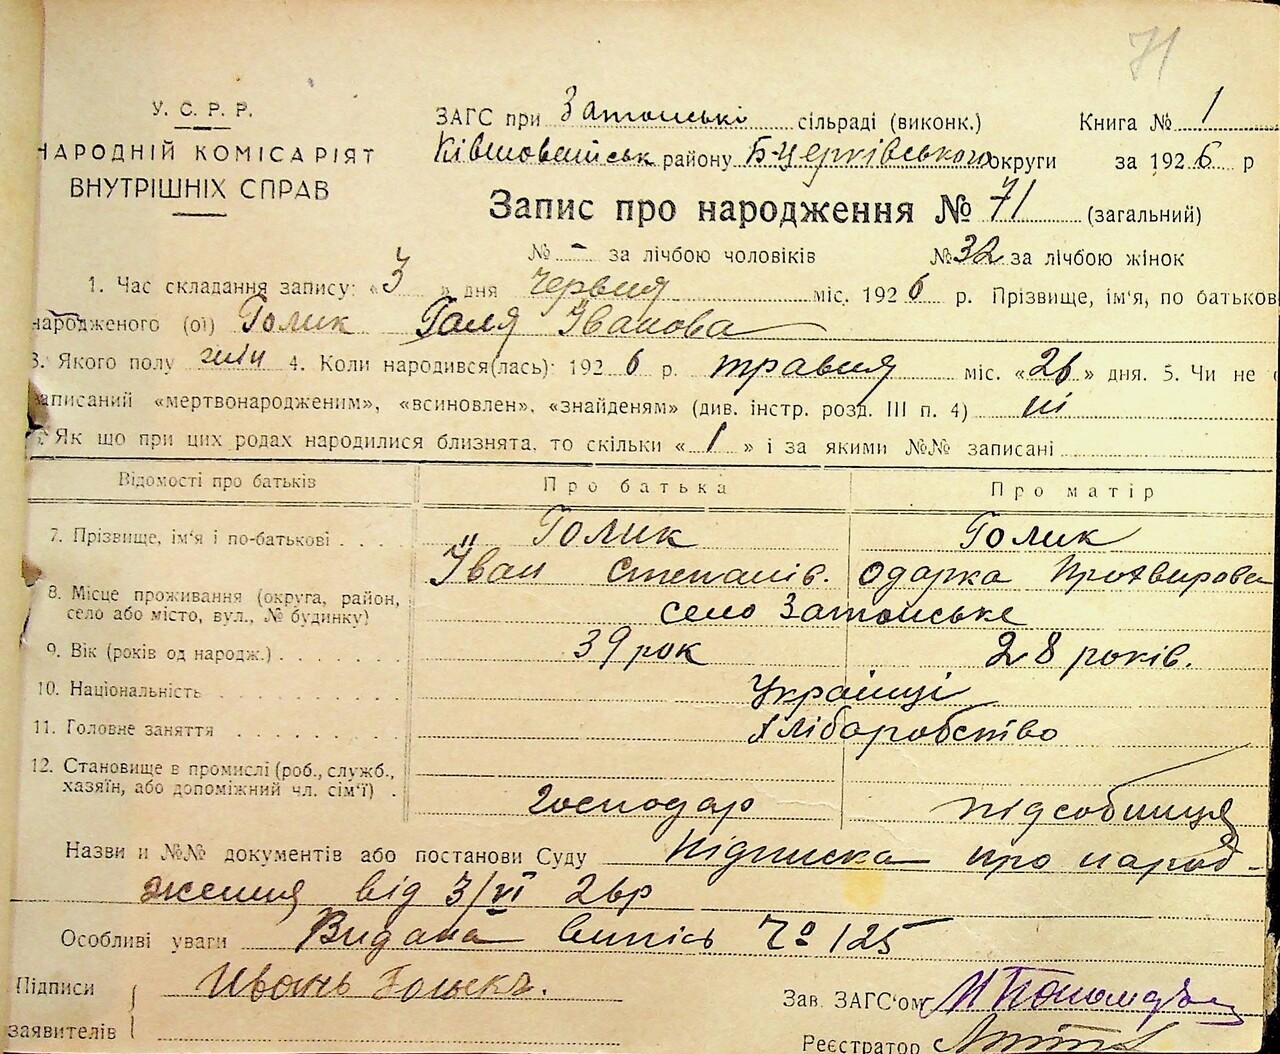 71
У. С. Р. Р.
НАРОДНІЙ КОМІСАРІЯТ
ВНУТРІШНІХ СПРАВ
ЗАГС при Затонські сільраді (виконк.) Книга № 1
Ківшовацьк району Б Церківського округи за 1926 р
Запис про народження № 71 (загальний)
№ - за лічбою чоловіків № 32 за лічбою жінок
1. Час складання запису: «3 » дня червня міс. 1926 р. Прізвище, ім'я, по батьков
народженого (ої) Голик Галя Іванова
3. Якого полу жін 4. Коли народився(лась): 1926 р. травня міс. «26» дня. 5. Чи не
записаний «мертвонародженим», «всиновлен», «знайденям» (див. інстр. розд. III п. 4) ні
Як що при цих родах народилися близнята, то скільки «1» і за якими №№ записані
Відомості про батьків Про батька Про матір
7. Прізвище, ім'я і по-батькові Голик Голик
Іван Степанів. Одарка
8. Місце проживання (округа, район,
село або місто, вул., № будинку) село Затонське
9. Вік (років од народж.) 39 рок 28 років.
10. Національність Українці
11. Головне заняття хліборобство
12. Становище в промислі (роб., служб.,
хазяїн, або допоміжний чл. сім'ї) господар підсобниця
Назви и №№ документів або постанови Суду Підписка про народ-
ження від 3/VI 26р
Особливі уваги Видана випись № 125
Підписи Иванъ
заявителів
Зав. ЗАГС'ом
Реєстратор